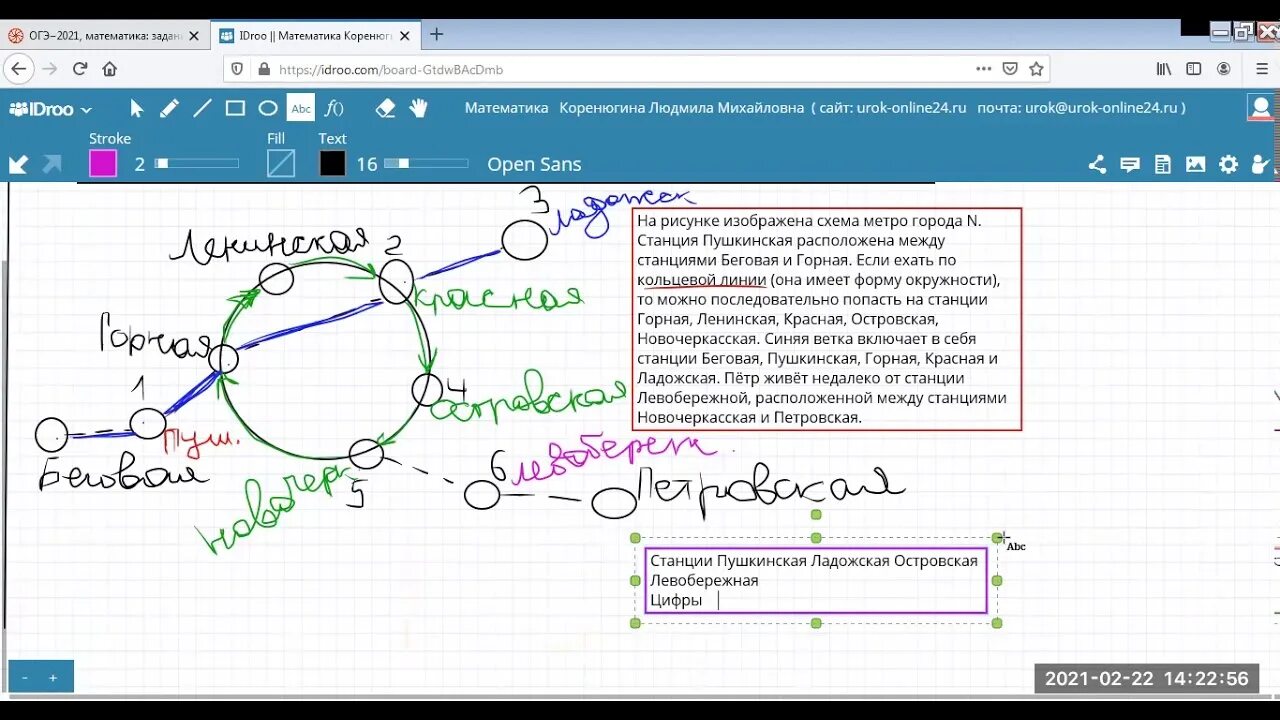 ОГЭ–2021, математика: задани
IDroo || Математика Коренюги
https://idroo.com/board-GtdwBAcDmb
IDroo
Abc
f()
Математика Коренюгина Людмила Михайловна ( сайт: urok-online24.ru почта: urok@urok-online24.ru )
Stroke
Fill
Text
2
16
Open Sans
3
Ладожск
Ленинская
2
Красная
Горная
1
4
Островская
Пуш.
Беговая
Новочерк
5
6
Левобереж.
Петровская
На рисунке изображена схема метро города N.
Станция Пушкинская расположена между
станциями Беговая и Горная. Если ехать по
кольцевой линии (она имеет форму окружности),
то можно последовательно попасть на станции
Горная, Ленинская, Красная, Островская,
Новочеркасская. Синяя ветка включает в себя
станции Беговая, Пушкинская, Горная, Красная и
Ладожская. Пётр живёт недалеко от станции
Левобережной, расположенной между станциями
Новочеркасская и Петровская.
Abc
Станции Пушкинская Ладожская Островская
Левобережная
Цифры
- +
2021-02-22 14:22:56